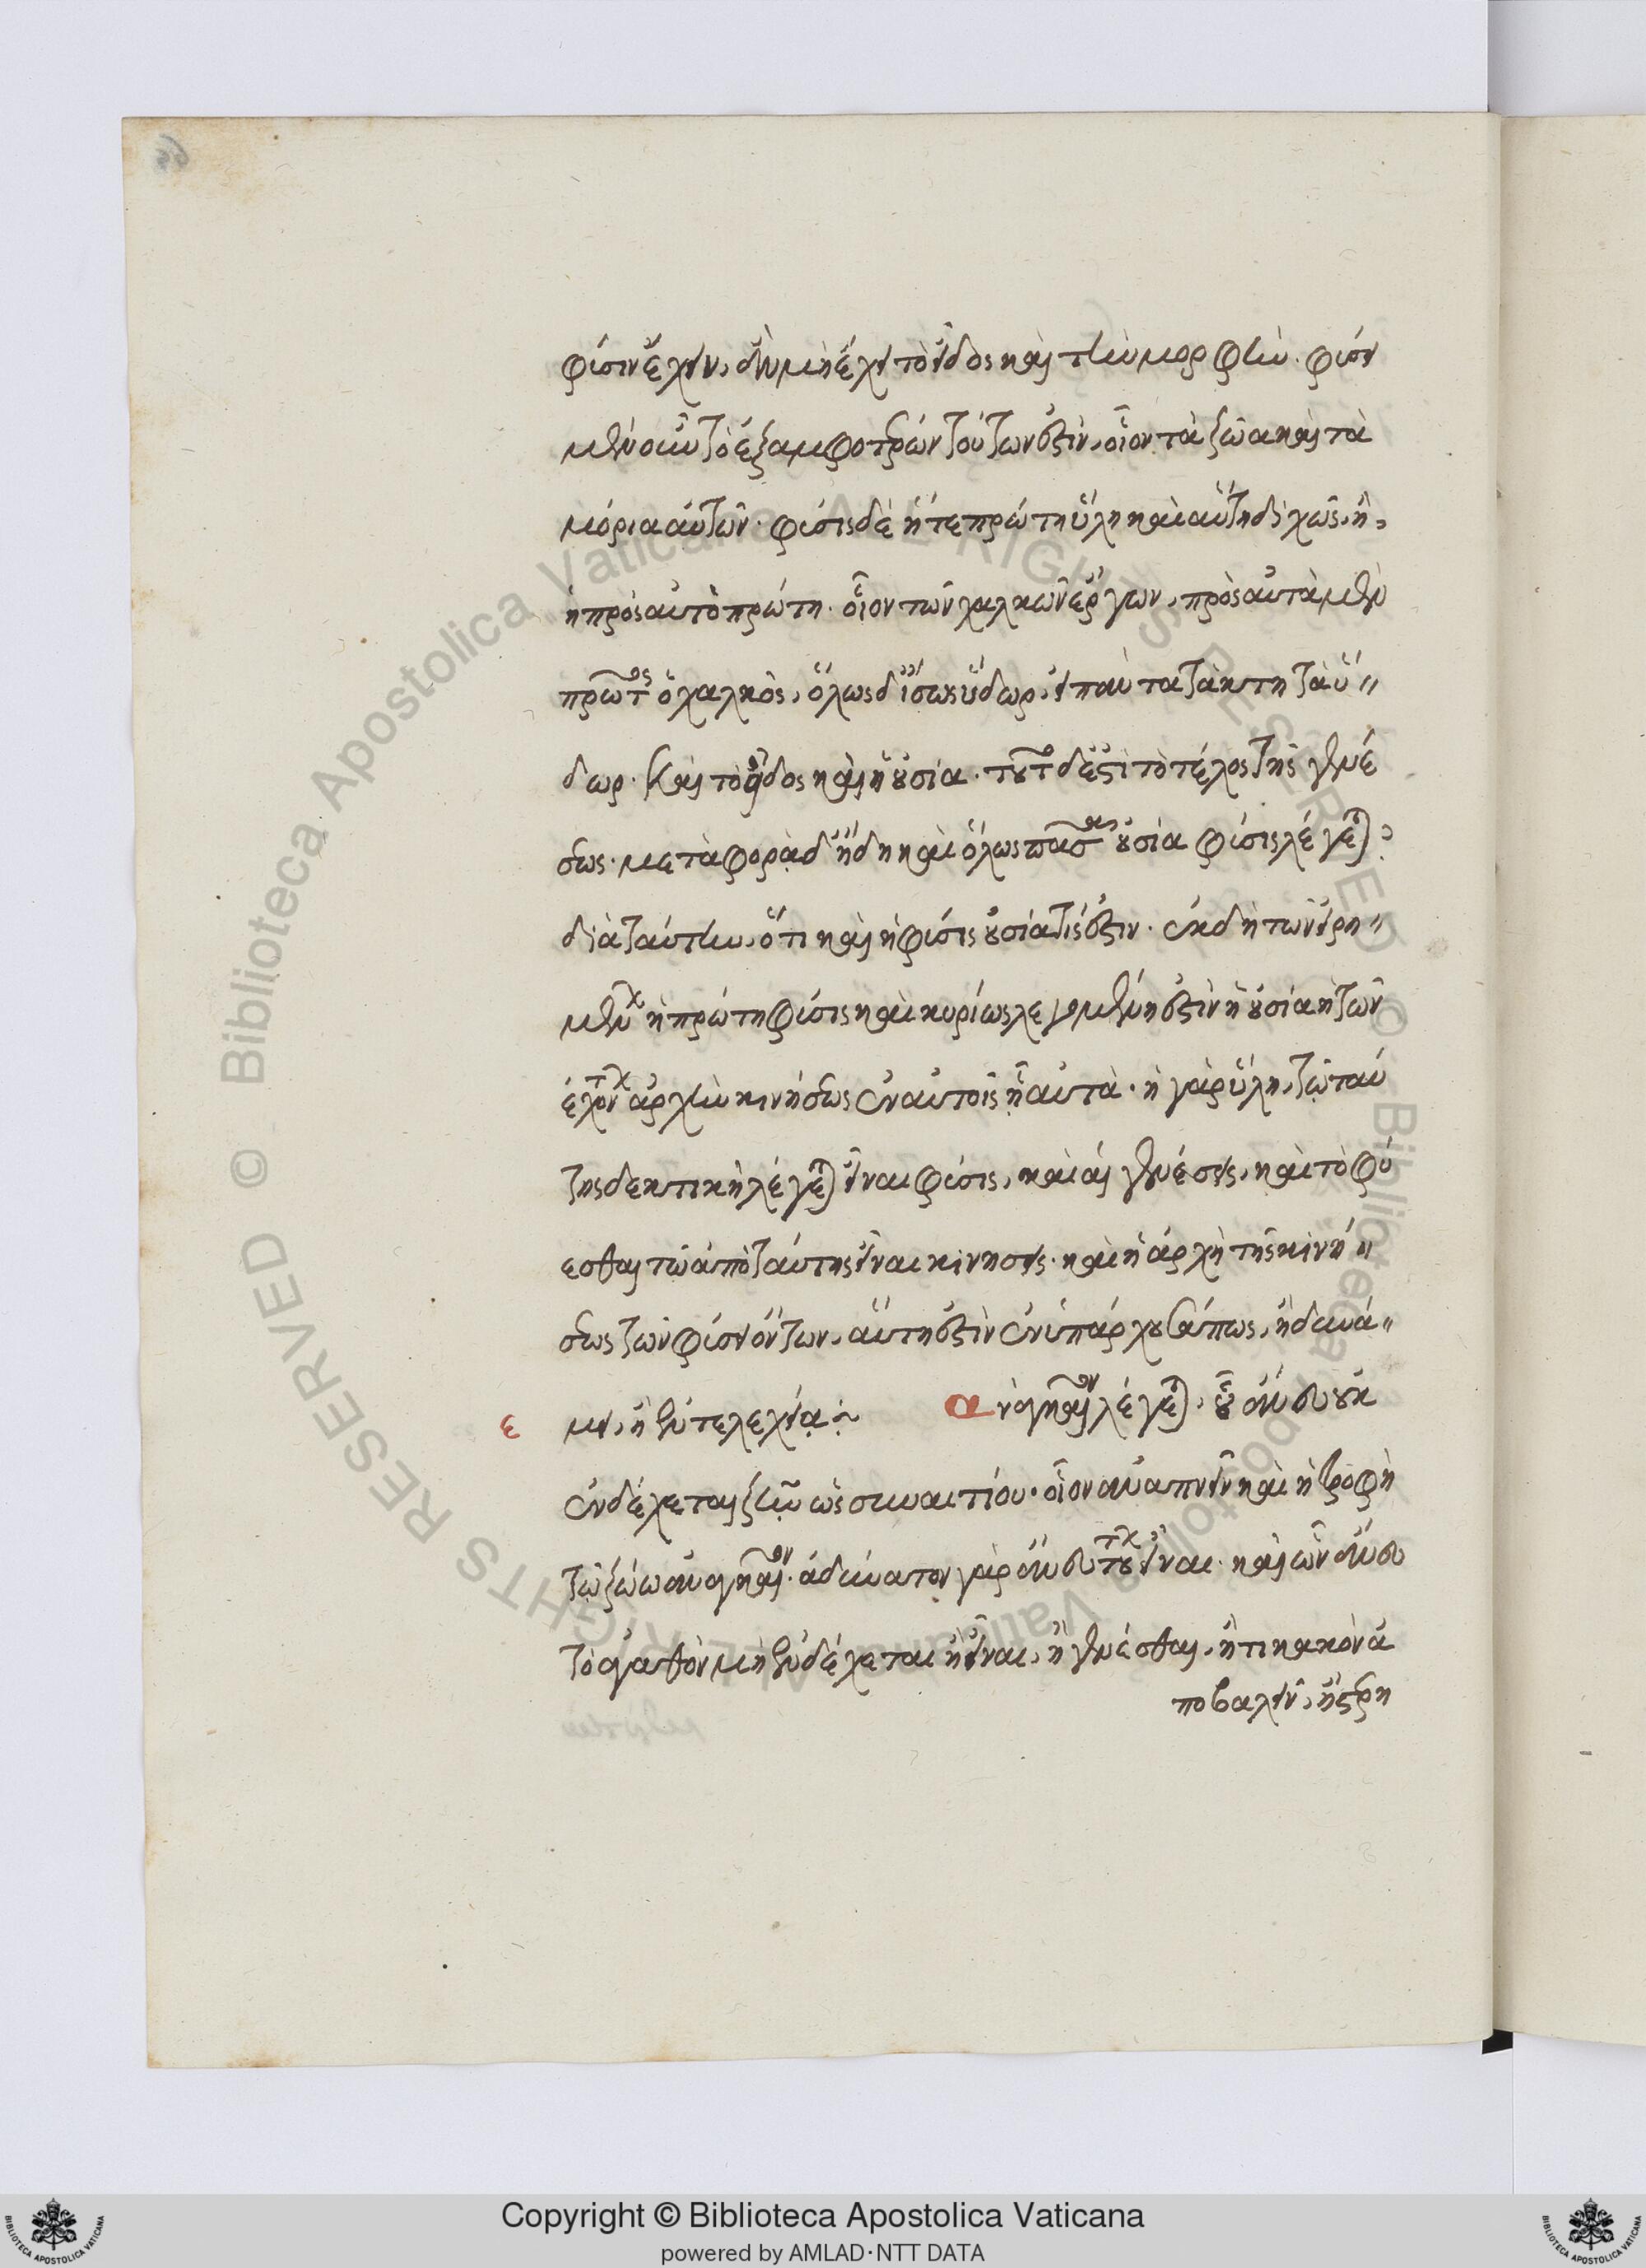 φύσιν ἔχειν, ἐὰν μὴ ἔχει τὸ εἶδος καὶ τὴν μορφήν. φύσει
μὲν οὖν τὸ ἐξ ἀμφοτέρων τούτων ἐστὶν, οἷον τὰ ζῶα καὶ τὰ
μόρια αὐτῶν. φύσις δὲ ἥ τε πρώτη ὕλη καὶ αὕτη διχῶς, ἢ,
ἡ πρὸς αὐτὸ πρώτη. οἷον τῶν χαλκῶν ἔργων, πρὸς αὐτὰ μὲν
πρῶτος ὁ χαλκὸς, ὅλως δ' ἴσως ὕδωρ, εἰ πάντα τὰ τηκτὰ ὕ
δωρ. Καὶ τὸ εἶδος καὶ ἡ οὐσία. τοῦτο δ' ἐστὶ τὸ τέλος τῆς γενέ
σεως. μεταφορᾷ δ' ἤδη καὶ ὅλως πᾶσα οὐσία φύσις λέγεται
διὰ ταύτην, ὅτι καὶ ἡ φύσις οὐσία τίς ἐστιν. ἐκ δὴ τῶν εἰρη
μένων ἡ πρώτη φύσις καὶ κυρίως λεγομένη ἐστὶν ἡ οὐσία ἡ τῶν
ἐχόντων ἀρχὴν κινήσεως ἐν αὐτοῖς ᾗ αὐτά. ἡ γὰρ ὕλη, τῷ ταύ
της δεκτικὴ λέγεται εἶναι φύσις, καὶ αἱ γενέσεις, καὶ τὸ φύ
εσθαι τῷ ἀπὸ ταύτης εἶναι κινήσεις. καὶ ἡ ἀρχὴ τῆς κινή
σεως τῶν φύσει ὄντων, αὕτη ἐστὶν ἐνυπάρχουσά πως, ἢ δυνά
ε μει, ἢ ἐντελεχείᾳ: Ἀναγκαῖον λέγεται, οὗ ἄνευ οὐκ
ἐνδέχεται ζῆν ὡς συναιτίου. οἷον ἀναπνεῖν καὶ ἡ τροφὴ
τῷ ζώῳ ἀναγκαῖον. ἀδύνατον γὰρ ἄνευ τούτων εἶναι. καὶ ὧν ἄνευ
τὸ ἀγαθὸν μὴ ἐνδέχεται ἢ εἶναι, ἢ γενέσθαι, ἤ τι κακὸν ἀ
ποβαλεῖν, ἢ στρη
Copyright © Biblioteca Apostolica Vaticana
powered by AMLAD·NTT DATA